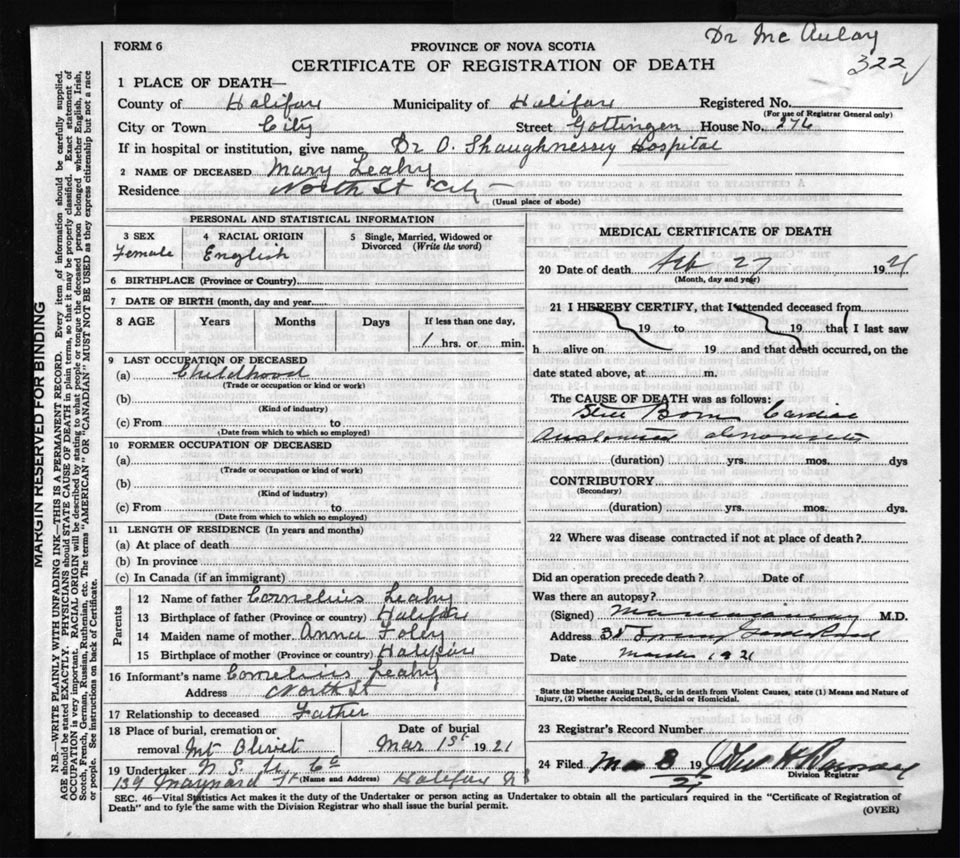 Dr Mc Aulay
322 √
FORM 6
PROVINCE OF NOVA SCOTIA
CERTIFICATE OF REGISTRATION OF DEATH
MARGIN RESERVED FOR BINDING
N.B.—WRITE PLAINLY WITH UNFADING INK—THIS IS A PERMANENT RECORD. Every item of information should be carefully supplied.
AGE should be stated EXACTLY. PHYSICIANS should STATE CAUSE OF DEATH in plain terms, so that it may be properly classified. Exact statement of
OCCUPATION is very important. RACIAL ORIGIN will be described by stating to what people or tongue the deceased person belonged whether English, Irish,
Scotch, French, German, Russian, Ruthenian, etc. The terms "AMERICAN" OR "CANADIAN" MUST NOT BE USED as they express citizenship but not a race
or people. See instructions on back of Certificate.
1 PLACE OF DEATH—
County of Halifax Municipality of Halifax Registered No.
(For use of Registrar General only)
City or Town City Street Gottingen House No. 276
If in hospital or institution, give name Dr O. Shaughnessey Hospital
2 NAME OF DECEASED Mary Leahy
Residence North St City —
(Usual place of abode)
PERSONAL AND STATISTICAL INFORMATION
3 SEX 4 RACIAL ORIGIN 5 Single, Married, Widowed or Divorced (Write the word)
Female English
6 BIRTHPLACE (Province or Country)
7 DATE OF BIRTH (month, day and year)
8 AGE Years Months Days If less than one day,
1 hrs. or min.
9 LAST OCCUPATION OF DECEASED
(a) Childhood
(Trade or occupation or kind or work)
(b)
(Kind of industry)
(c) From to
(Date from which to which so employed)
10 FORMER OCCUPATION OF DECEASED
(a)
(Trade or occupation or kind of work)
(b)
(Kind of industry)
(c) From to
(Date from which to which so employed)
11 LENGTH OF RESIDENCE (In years and months)
(a) At place of death
(b) In province
(c) In Canada (if an immigrant)
Parents
12 Name of father Cornelius Leahy
13 Birthplace of father (Province or country) Halifax
14 Maiden name of mother Anna Foley
15 Birthplace of mother (Province or country) Halifax
16 Informant's name Cornelius Leahy
Address North St
17 Relationship to deceased Father
18 Place of burial, cremation or removal Mt Olivet Date of burial Mar 1st 1921
19 Undertaker N S U Co
139 Maynard St (Name and Address) Halifax N S
MEDICAL CERTIFICATE OF DEATH
20 Date of death Feb 27 1921
(Month, day and year)
21 I HEREBY CERTIFY, that I attended deceased from
19 to 19 that I last saw
h alive on 19 and that death occurred, on the
date stated above, at m.
The CAUSE OF DEATH was as follows:
Still Born Cardiac
(duration) yrs. mos. dys
CONTRIBUTORY
(Secondary)
(duration) yrs. mos. dys.
22 Where was disease contracted if not at place of death?
Did an operation precede death? Date of
Was there an autopsy?
(Signed) M.D.
Address 35
Date March 1921
State the Disease causing Death, or in death from Violent Causes, state (1) Means and Nature of
Injury, (2) whether Accidental, Suicidal or Homicidal.
23 Registrar's Record Number
24 Filed Mar 8 1921
Division Registrar
SEC. 46—Vital Statistics Act makes it the duty of the Undertaker or person acting as Undertaker to obtain all the particulars required in the "Certificate of Registration of
Death" and to fyle the same with the Division Registrar who shall issue the burial permit.
(OVER)